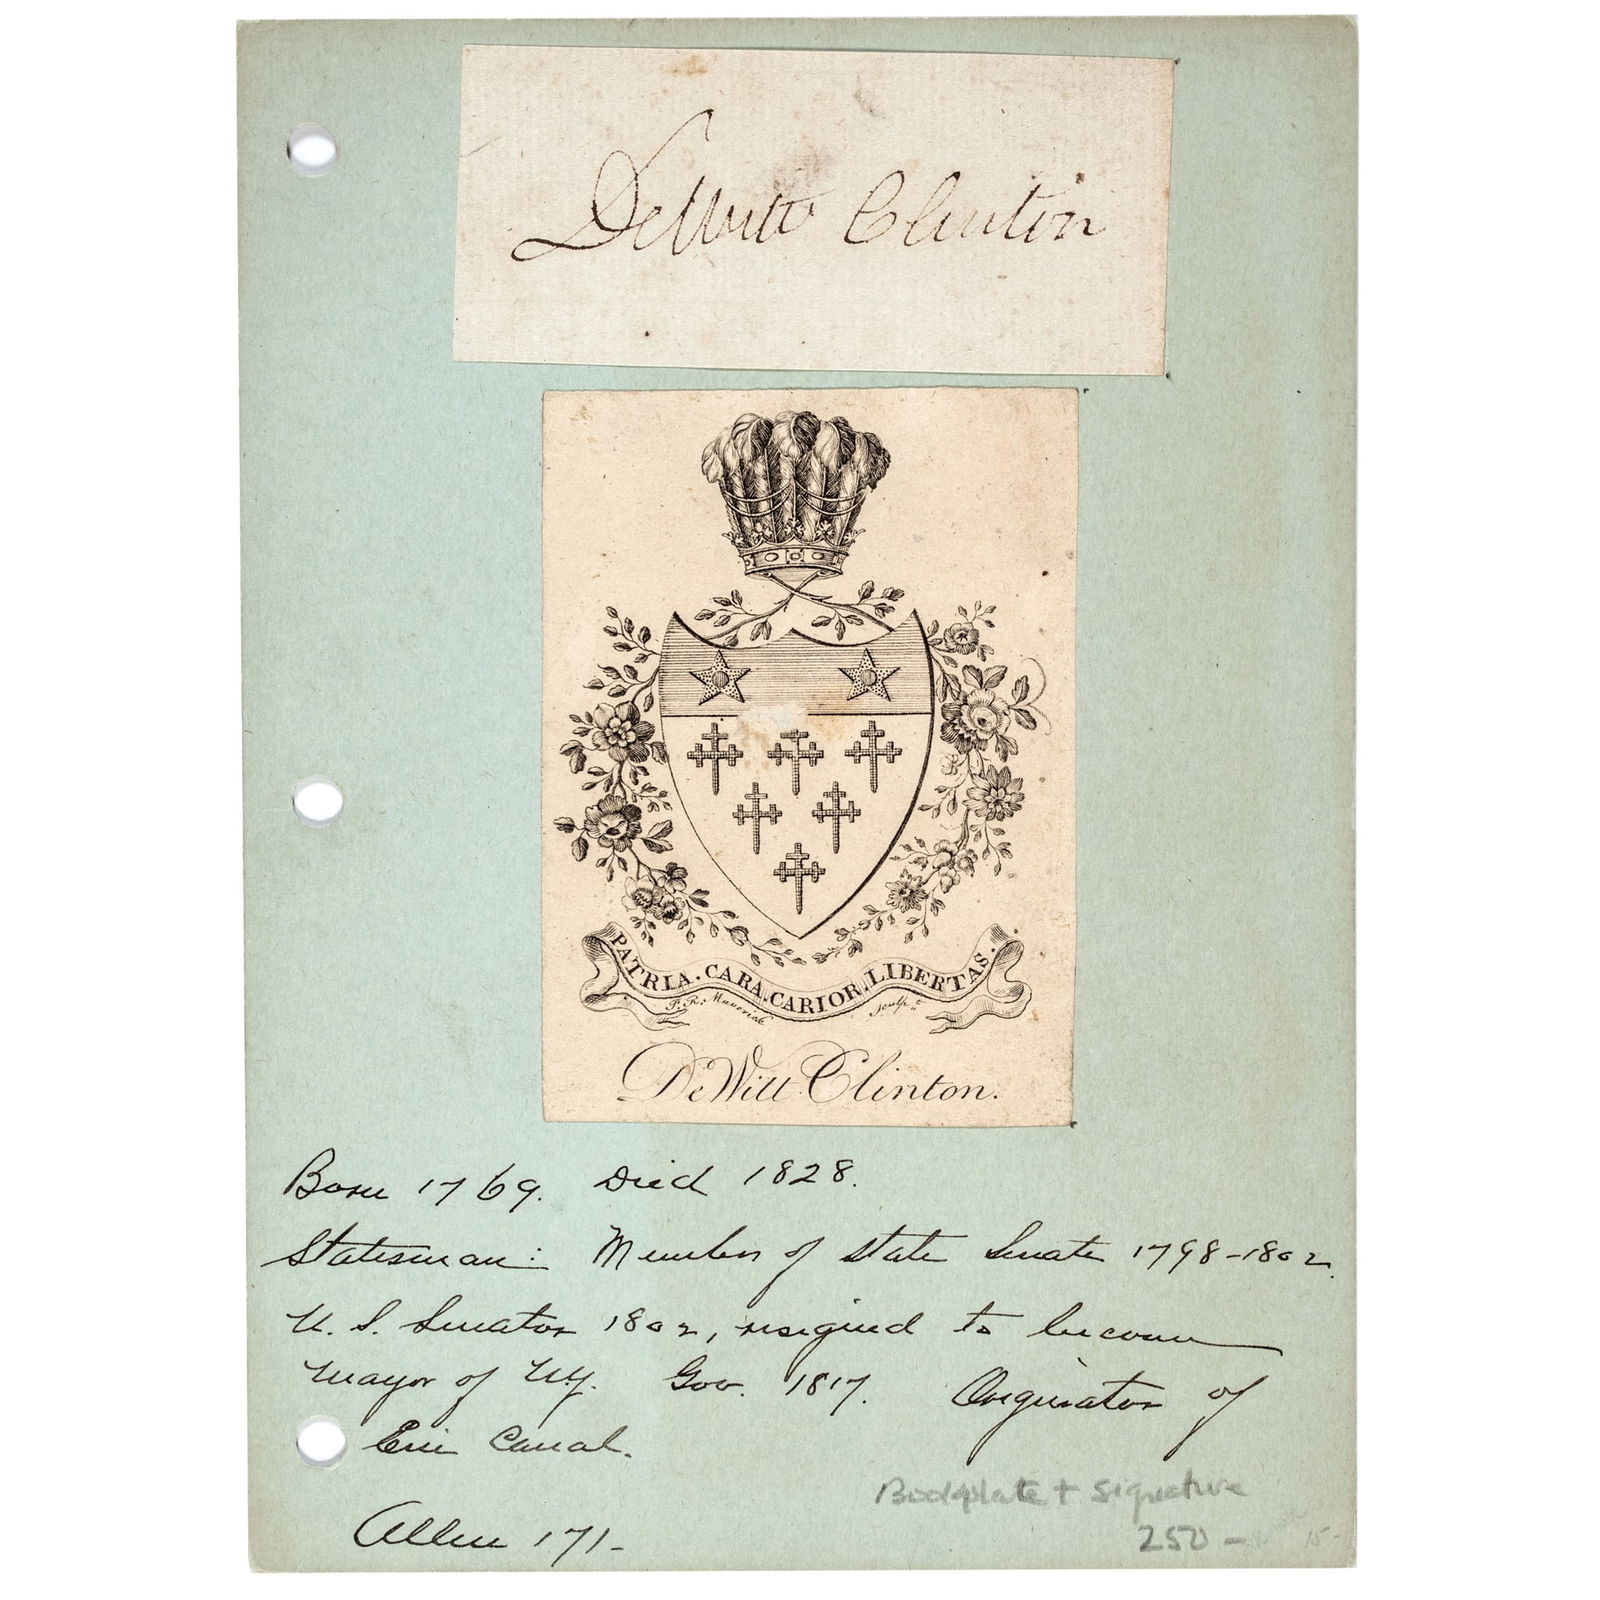 DeWitt Clinton
PATRIA. CARA. CARIOR. LIBERTAS.
P. R. Maverick sculpt
DeWitt Clinton.
Born 1769. Died 1828.
Statesman: Member of State Senate 1798-1802.
U. S. Senator 1802, resigned to become
Mayor of N.Y. Gov. 1817. Originator of
Erie Canal.
Bookplate + Signature
Allen 171-
250 -
15-